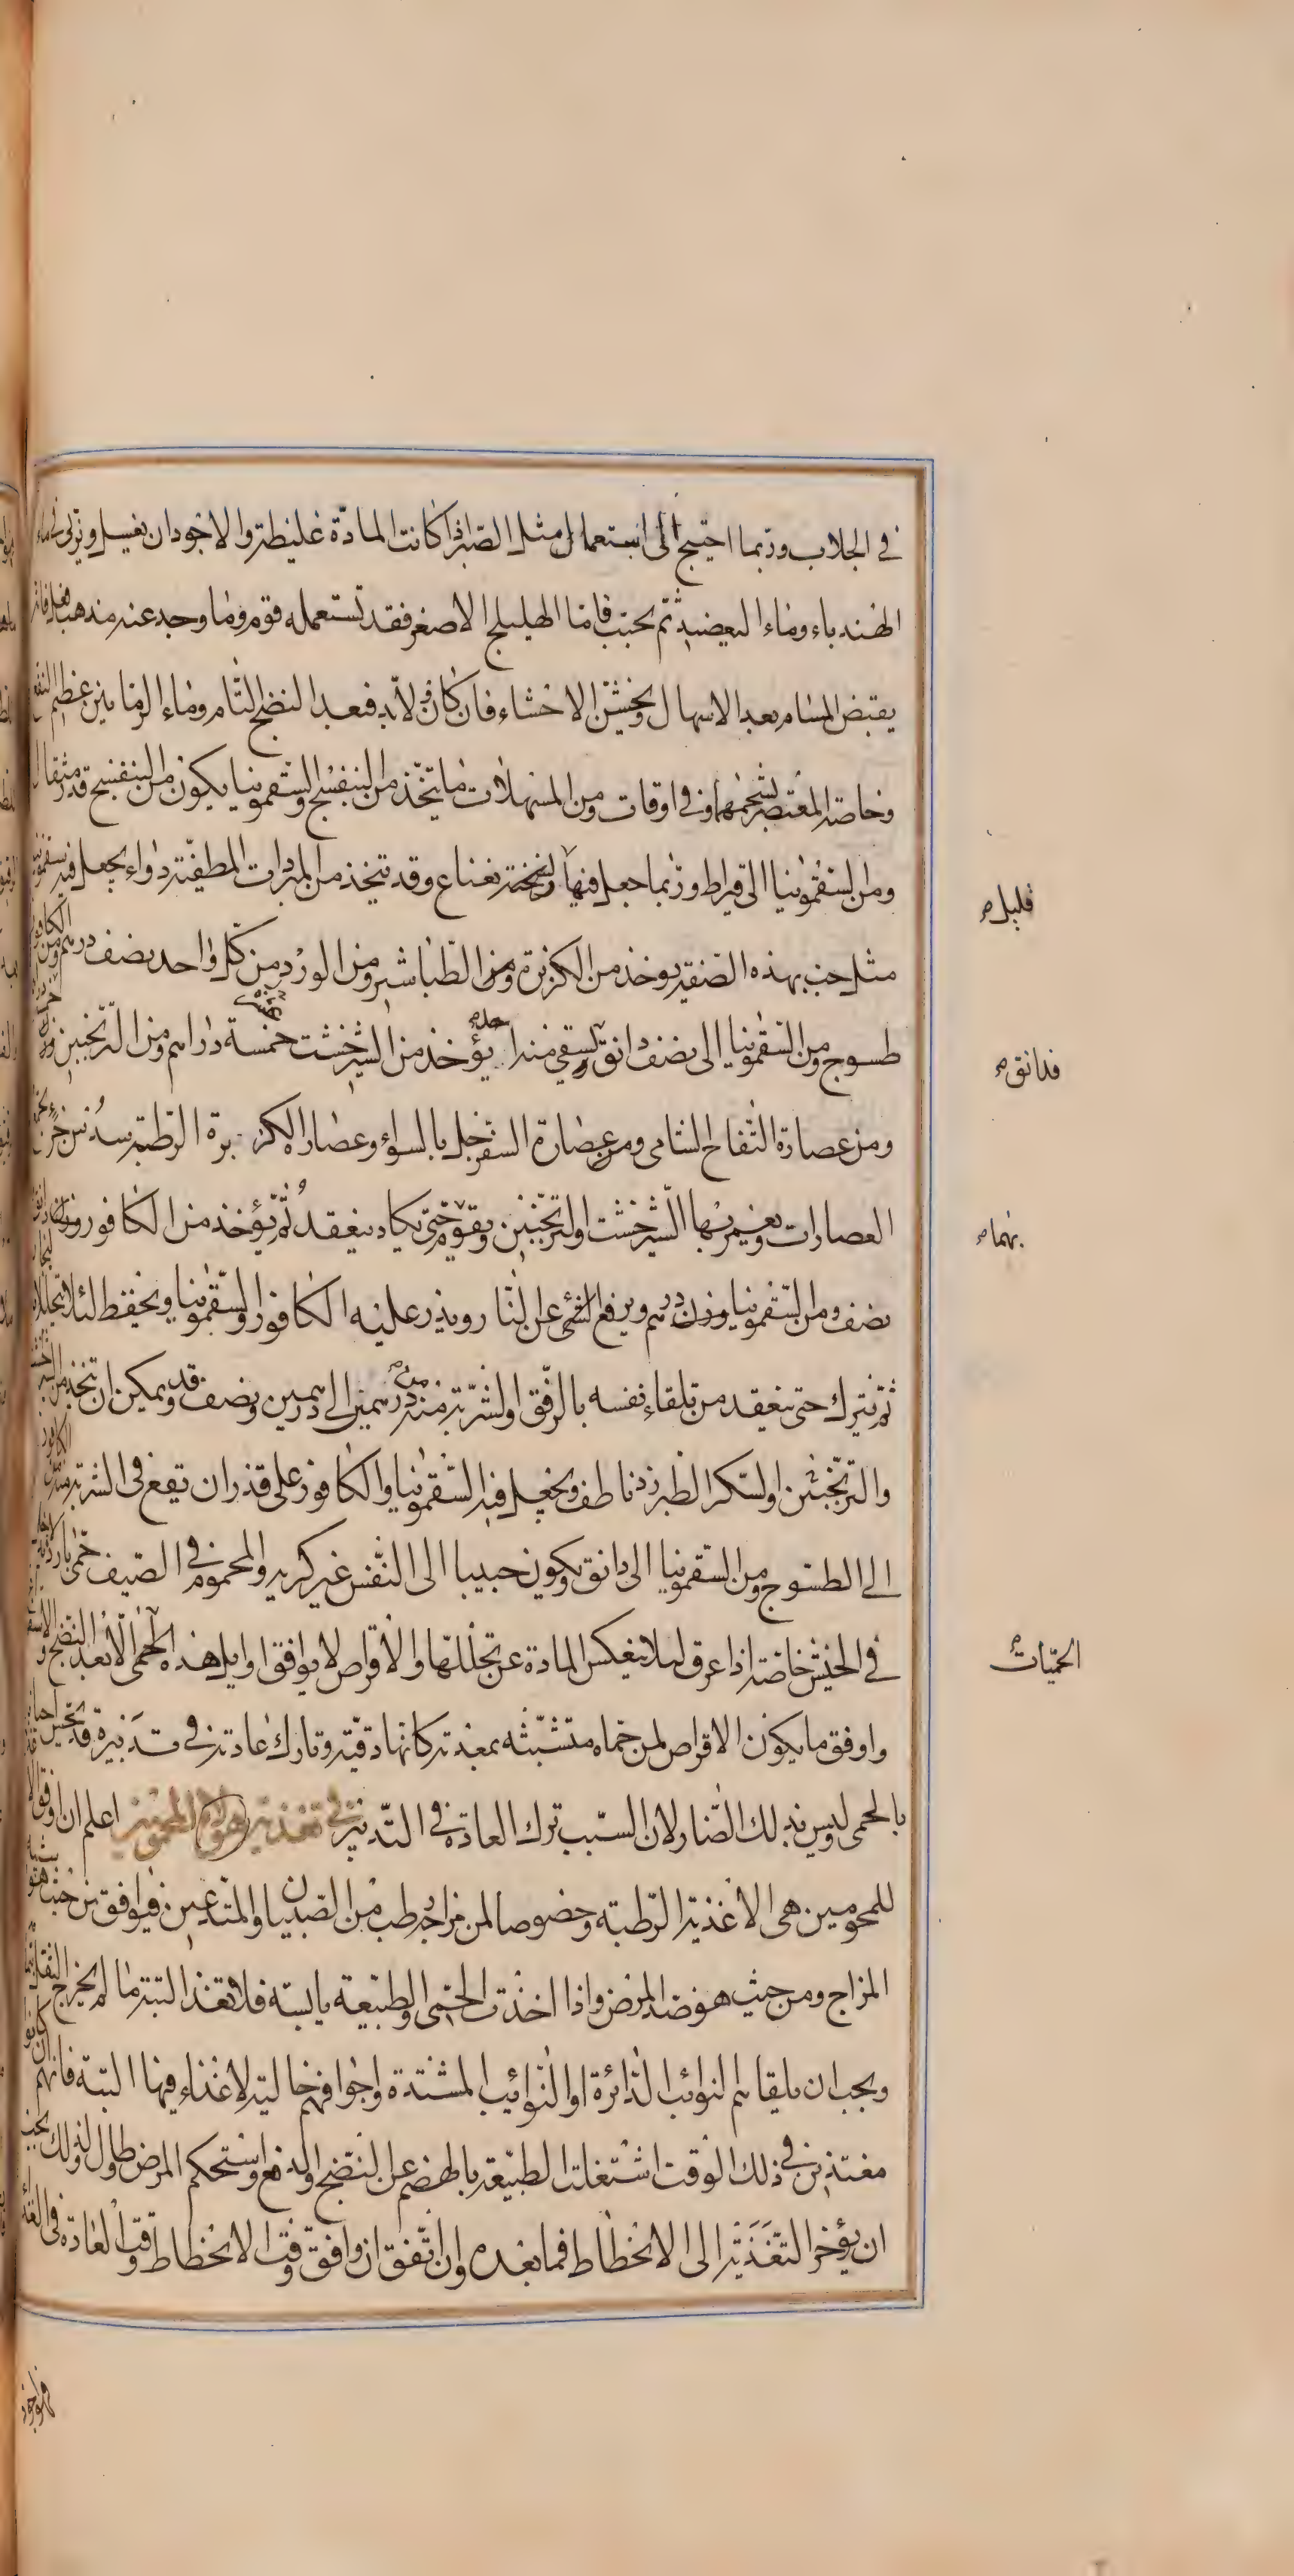 في الجلاب وربما احتيج الى استعمال مثل الصبر اذا كانت المادة غليظة والاجود ان يغسل ويربى في ماء
الهندباء وماء البعضيد ثم يحبب فاما الهليلج الاصفر فقد تستعمله قوم وما وجد عنه مذهب فانه
يقبض المسام بعد الاسهال ويخشن الاحشاء فان كان ولابد فبعد النضج التام وماء الرمانين عظيم النفع
وخاصة المعتصر بشحمهما وفي اوقات ومن المسهلات ما يتخذ من البنفسج والسقمونيا يكون من البنفسج قدر مثقال
ومن السقمونيا الى قيراط وربما جعل فيها نعناع وقد تتخذ من المبردات المطفية دواء يجعل فيه سقمونيا
قليل
مثل حب بهذه الصفة يوخذ من الكزبرة ومن الطباشير ومن الورد من كل واحد نصف درهم ومن الكافور
طسوج ومن السقمونيا الى نصف دانق يسقى منه يؤخذ من الشيرخشت خمسة دراهم ومن الترنجبين
فدانق
ومن عصارة التفاح الشامي ومن عصارة السفرجل بالسواء وعصارة الكزبرة الرطبة سدس جزء
العصارات ويغمر بها الشيرخشت والترنجبين ويقوم حتى يكاد ينعقد ثم يؤخذ من الكافور وزن
بهما
نصف ومن السقمونيا وزن درهم ويرفع الشئ عن النار ويذر عليه الكافور والسقمونيا ويحفظ لئلا يتحلل
ثم يترك حتى ينعقد من تلقاء نفسه بالرفق والشربة منه من درهمين الى درهمين ونصف وقد يمكن ان يتخذ من الشيرخشت
والترنجبين والسكر الطبرزد ناطف ويجعل فيه السقمونيا والكافور على قدر ان يقع في الشربة منه
الى الطسوج ومن السقمونيا الى دانق ويكون حبيبا الى النفس غير كريه والمحموم في الصيف حمى باردة
في الخيش خاصة اذا عرق لئلا ينعكس المادة عن تحللها والاقراص لا يوافق اوايل هذه الحمى الا بعد النضج
الحميات
واوفق ما يكون الاقراص لمن حماه متشبثة بمعدته كانها دقية وتارك عادته في تدبيره قد
بالحمى وليس بذلك الضار لان السبب ترك العادة في التدبير في تغذية هؤلاء المحمومين اعلم ان اوفق
للمحمومين هي الاغذية الرطبة وخصوصا لمن مزاجه رطب من الصبيان والمتدعين فيوافق من حيث
المزاج ومن حيث هو ضد المرض واذا اخذت الحمى والطبيعة يابسة فلا تغذ البتة ما لم يخرج الثفل
ويجب ان يلقاهم النوائب الدائرة او النوائب المشتدة واجوافهم خالية لا غذاء فيها البتة فانهم ان كانوا
مغتذين في ذلك الوقت اشتغلت الطبيعة بالهضم عن النضج والدفع واستحكم المرض وطال ولذلك يجب
ان يؤخر التغذية الى الانحطاط فما بعده وان اتفق ان وافق وقت الانحطاط وقت العادة في الغذاء
فهو اجود